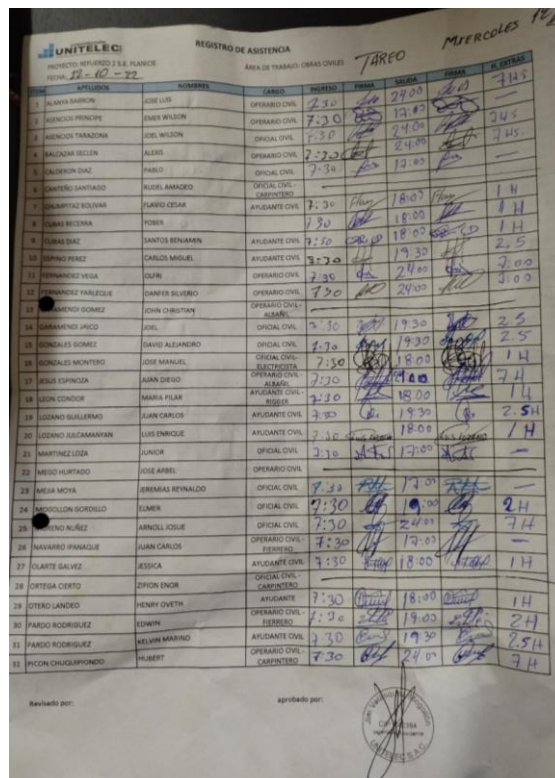 UNITELEC
REGISTRO DE ASISTENCIA
TAREO
MIERCOLES
PROYECTO: REFUERZO 2 S.E. PLANICIE
ÁREA DE TRABAJO: OBRAS CIVILES
FECHA: 22-10-22
ITEM APELLIDOS NOMBRES CARGO INGRESO FIRMA SALIDA FIRMA H. EXTRAS
1 ALANYA BARRON JOSE LUIS OPERARIO CIVIL 7:30 24:00 7HS
2 ASENCIOS PRINCIPE EMER WILSON OPERARIO CIVIL 7:30 17:00 —
3 ASENCIOS TARAZONA JOEL WILSON OFICIAL CIVIL 7:30 24:00 7HS
4 BALCAZAR SECLEN ALEXIS OPERARIO CIVIL 7:30 24:00 7HS.
5 CALDERON DIAZ PABLO OFICIAL CIVIL 7:30 17:00 —
6 CANTEÑO SANTIAGO RUDEL AMADEO OFICIAL CIVIL - CARPINTERO
7 CHUMPITAZ BOLIVAR FLAVIO CESAR AYUDANTE CIVIL 7:30 18:00 1H
8 CUBAS BECERRA YOBER 730 18:00 1H
9 CUBAS DIAZ SANTOS BENJAMIN AYUDANTE CIVIL 7:30 18:00 1H
10 ESPINO PEREZ CARLOS MIGUEL AYUDANTE CIVIL 7:30 19:30 2.5
11 FERNANDEZ VEGA OPERARIO CIVIL 7:30 24:00 7:00
12 FERNANDEZ YARLEQUE DANFER SILVERIO OPERARIO CIVIL 730 24:00 7:00
13 GARAMENDI GOMEZ JOHN CHRISTIAN OPERARIO CIVIL - ALBAÑIL
14 GARAMENDI JAICO JOEL OFICIAL CIVIL 7:30 19:30 2.5
15 GONZALES GOMEZ DAVID ALEJANDRO OFICIAL CIVIL 7:30 19:30 2.5
16 GONZALES MONTERO JOSE MANUEL OFICIAL CIVIL - ELECTRICISTA 7:30 18:00 1H
17 JESUS ESPINOZA JUAN DIEGO OPERARIO CIVIL - ALBAÑIL 7:30 7H
18 LEON CONDOR MARIA PILAR AYUDANTE CIVIL - 7:30 18:00 1H
19 LOZANO GUILLERMO JUAN CARLOS AYUDANTE CIVIL 7:30 19:30 2.5H
20 LOZANO JULCAMANYAN LUIS ENRIQUE AYUDANTE CIVIL 7:30 18:00 1H
21 MARTINEZ LOZA JUNIOR OFICIAL CIVIL 7:30 17:00 —
22 MEGO HURTADO JOSE ARBEL OPERARIO CIVIL
23 MEJIA MOYA JEREMIAS REYNALDO OFICIAL CIVIL 7:30 17:00 —
24 MOGOLLON GORDILLO ELMER OFICIAL CIVIL 7:30 19:00 2H
25 MORENO NUÑEZ ARNOLL JOSUE OFICIAL CIVIL 7:30 24:00 7H
26 NAVARRO IPANAQUE JUAN CARLOS OPERARIO CIVIL - FIERRERO 7:30 17:00 —
27 OLARTE GALVEZ JESSICA AYUDANTE CIVIL 7:30 18:00 1H
28 ORTEGA CIERTO ZIFION ENOR OFICIAL CIVIL - CARPINTERO
29 OTERO LANDEO HENRY OVETH AYUDANTE 7:30 18:00 1H
30 PARDO RODRIGUEZ EDWIN OPERARIO CIVIL - FIERRERO 7:30 19:00 2H
31 PARDO RODRIGUEZ KELVIN MARINO AYUDANTE CIVIL 7:30 19:30 2.5H
32 PICON CHUQUIPIONDO HUBERT OPERARIO CIVIL - CARPINTERO 7:30 24:00 7H
Revisado por:
aprobado por:
UNITELEC S.A.C.